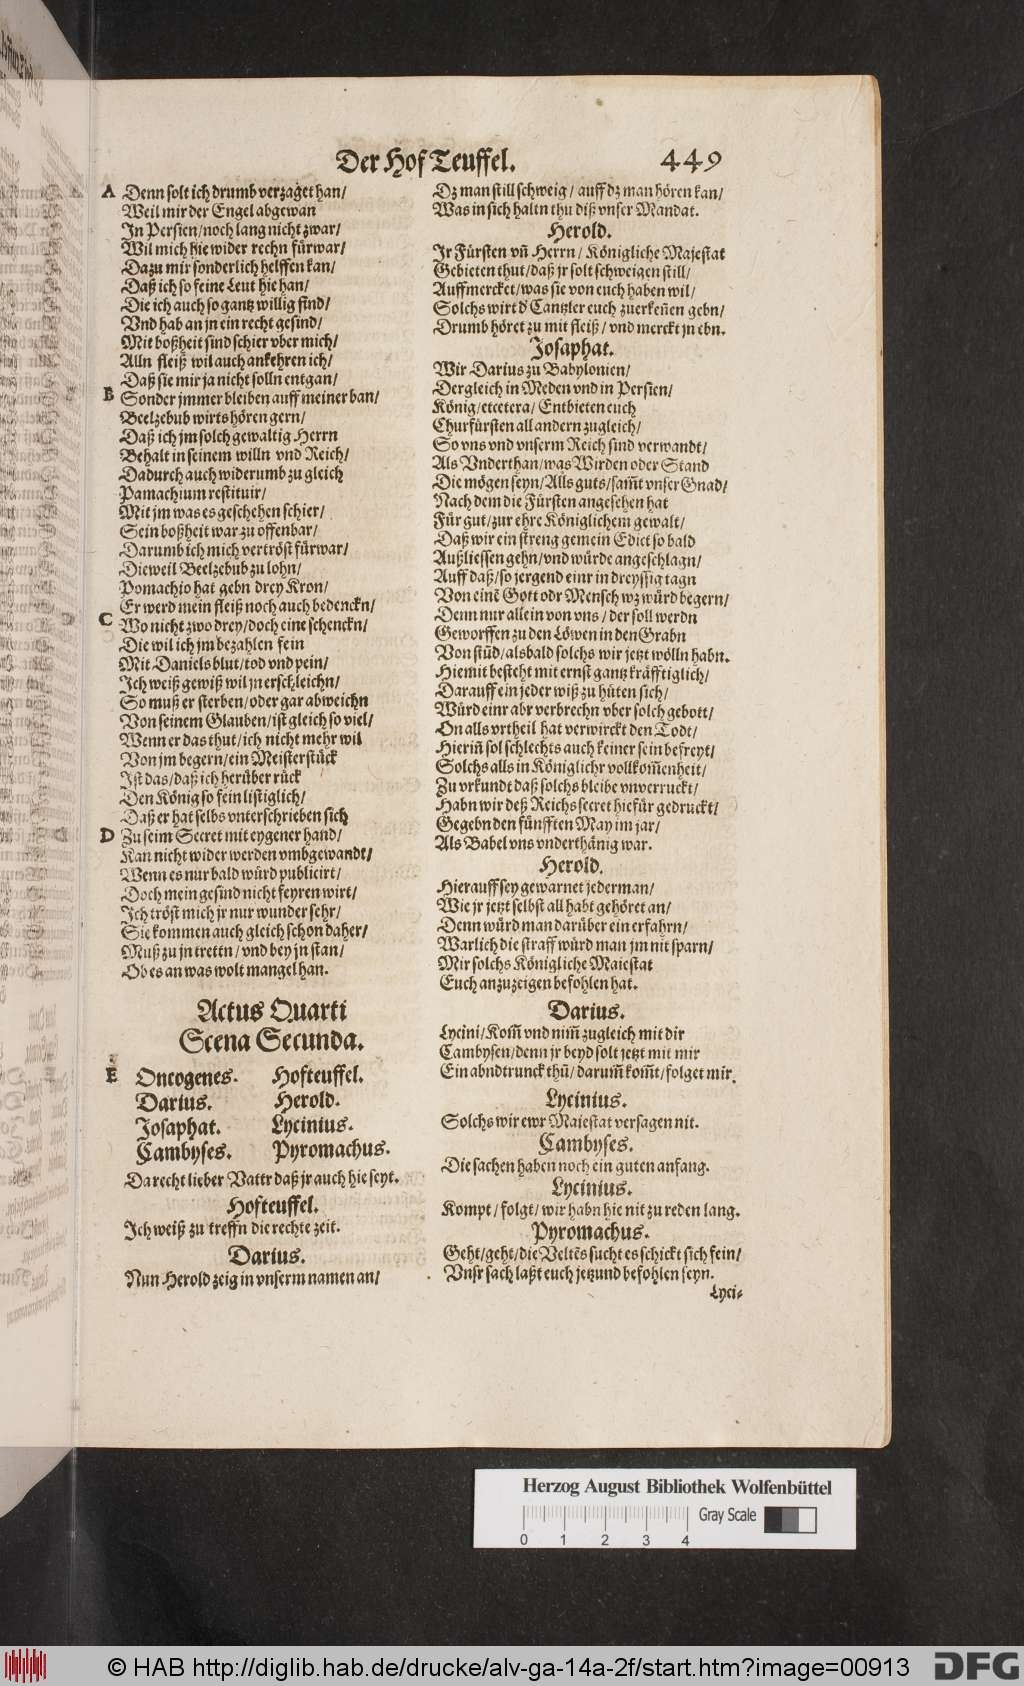 Der Hof Teuffel. 449
A Denn solt ich drumb verzaget han/
Weil mir der Engel abgewan
In Persien/noch lang nicht zwar/
Wil mich hie wider rechn fürwar/
Dazu mir sonderlich helffen kan/
Daß ich so feine Leut hie han/
Die ich auch so gantz willig find/
Vnd hab an jn ein recht gesind/
Mit boßheit sind schier vber mich/
Alln fleiß wil auch ankehren ich/
Daß sie mir ja nicht solln entgan/
B Sonder jmmer bleiben auff meiner ban/
Beelzebub wirts hören gern/
Daß ich jm solch gewaltig Herrn
Behalt in seinem willn vnd Reich/
Dadurch auch widerumb zu gleich
Pamachium restituir/
Mit jm was es geschehen schier/
Sein boßheit war zu offenbar/
Darumb ich mich vertröst fürwar/
Dieweil Beelzebub zu lohn/
Pomachio hat gebn drey Kron/
Er werd mein fleiß noch auch bedenckn/
C Wo nicht zwo drey/doch eine schenckn/
Die wil ich jm bezahlen fein
Mit Daniels blut/tod vnd pein/
Ich weiß gewiß wil jn erschleichn/
So muß er sterben/oder gar abweichn
Von seinem Glauben/ist gleich so viel/
Wenn er das thut/ich nicht mehr wil
Von jm begern/ein Meisterstück
Ist das/daß ich herüber rück
Den König so fein listiglich/
Daß er hat selbs vnterschrieben sich
D Zu seim Secret mit eygener hand/
Kan nicht wider werden vmbgewandt/
Wenn es nur bald würd publicirt/
Doch mein gesind nicht feyren wirt/
Ich tröst mich jr nur wunder sehr/
Sie kommen auch gleich schon daher/
Muß zu jn trettn/vnd bey jn stan/
Ob es an was wolt mangel han.
Actus Quarti
Scena Secunda.
E Oncogenes. Hofteuffel.
Darius. Herold.
Josaphat. Lycinius.
Cambyses. Pyromachus.
Da recht lieber Vattr daß jr auch hie seyt.
Hofteuffel.
Ich weiß zu treffn die rechte zeit.
Darius.
Nun Herold zeig in vnserm namen an/
Dz man still schweig/auff dz man hören kan/
Was in sich haltn thu diß vnser Mandat.
Herold.
Ir Fürsten vñ Herrn/Königliche Majestat
Gebieten thut/daß jr solt schweigen still/
Auffmercket/was sie von euch haben wil/
Solchs wirt d' Cantzler euch zuerkeñen gebn/
Drumb höret zu mit fleiß/vnd merckt jn ebn.
Josaphat.
Wir Darius zu Babylonien/
Dergleich in Meden vnd in Persien/
König/etcetera/Entbieten euch
Churfürsten all andern zugleich/
So vns vnd vnserm Reich sind verwandt/
Als Vnderthan/was Wirden oder Stand
Die mögen seyn/Alls guts/sam̃t vnser Gnad/
Nach dem die Fürsten angesehen hat
Für gut/zur ehre Königlichem gewalt/
Daß wir ein streng gemein Edict so bald
Außliessen gehn/vnd würde angeschlagn/
Auff daß/so jergend einr in dreyssig tagn
Von einẽ Gott odr Mensch wz würd begern/
Denn nur allein von vns/der soll werdn
Geworffen zu den Löwen in den Grabn
Von stũd/alsbald solchs wir jetzt wölln habn.
Hiemit besteht mit ernst gantz kräfftiglich/
Darauff ein jeder wiß zu hüten sich/
Würd einr abr verbrechn vber solch gebott/
On alls vrtheil hat verwirckt den Todt/
Hieriñ sol schlechts auch keiner sein befreyt/
Solchs alls in Königlichr vollkom̃enheit/
Zu vrkundt daß solchs bleibe vnverruckt/
Habn wir deß Reichs secret hiefür gedruckt/
Gegebn den fünfften May im jar/
Als Babel vns vnderthänig war.
Herold.
Hierauff sey gewarnet jederman/
Wie jr jetzt selbst all habt gehöret an/
Denn würd man darüber ein erfahrn/
Warlich die straff würd man jm nit sparn/
Mir solchs Königliche Maiestat
Euch anzuzeigen befohlen hat.
Darius.
Lycini/Kom̃ vnd nim̃ zugleich mit dir
Cambysen/denn jr beyd solt jetzt mit mir
Ein abndtrunck thũ/darum̃ kom̃t/folget mir.
Lycinius.
Solchs wir ewr Maiestat versagen nit.
Cambyses.
Die sachen haben noch ein guten anfang.
Lycinius.
Kompt/folgt/wir habn hie nit zu reden lang.
Pyromachus.
Geht/geht/die Veltẽs sucht es schickt sich fein/
Vnsr sach laßt euch jetzund befohlen seyn.
Lyci-
Herzog August Bibliothek Wolfenbüttel
Gray Scale
0 1 2 3 4
© HAB http://diglib.hab.de/drucke/alv-ga-14a-2f/start.htm?image=00913
DFG